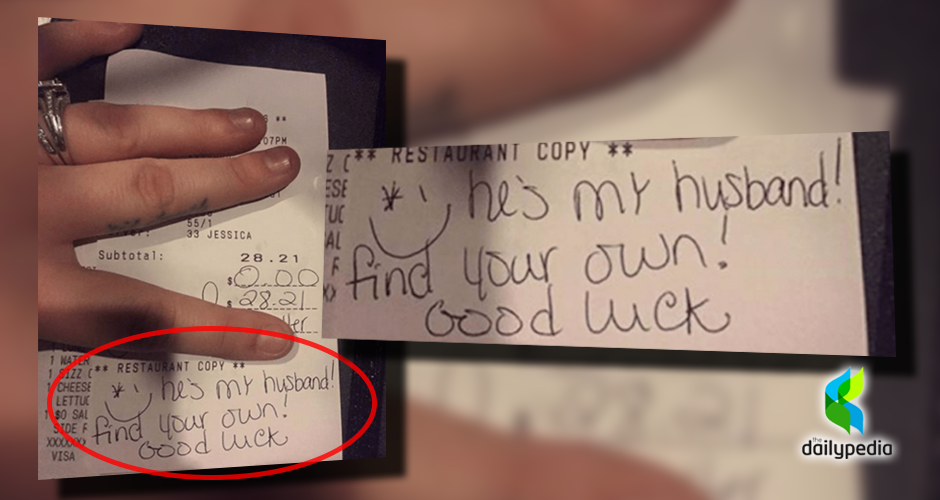 07PM
55/1
33 JESSICA
Subtotal: 28.21
$0.00
$28.21
1 WATER
1 CHEESE
LETTUC
SIDE F
XXXXXXX
VISA
** RESTAURANT COPY **
he's my husband!
find your own!
Good Luck
** RESTAURANT COPY **
he's my husband!
find your own!
Good Luck
the
dailypedia